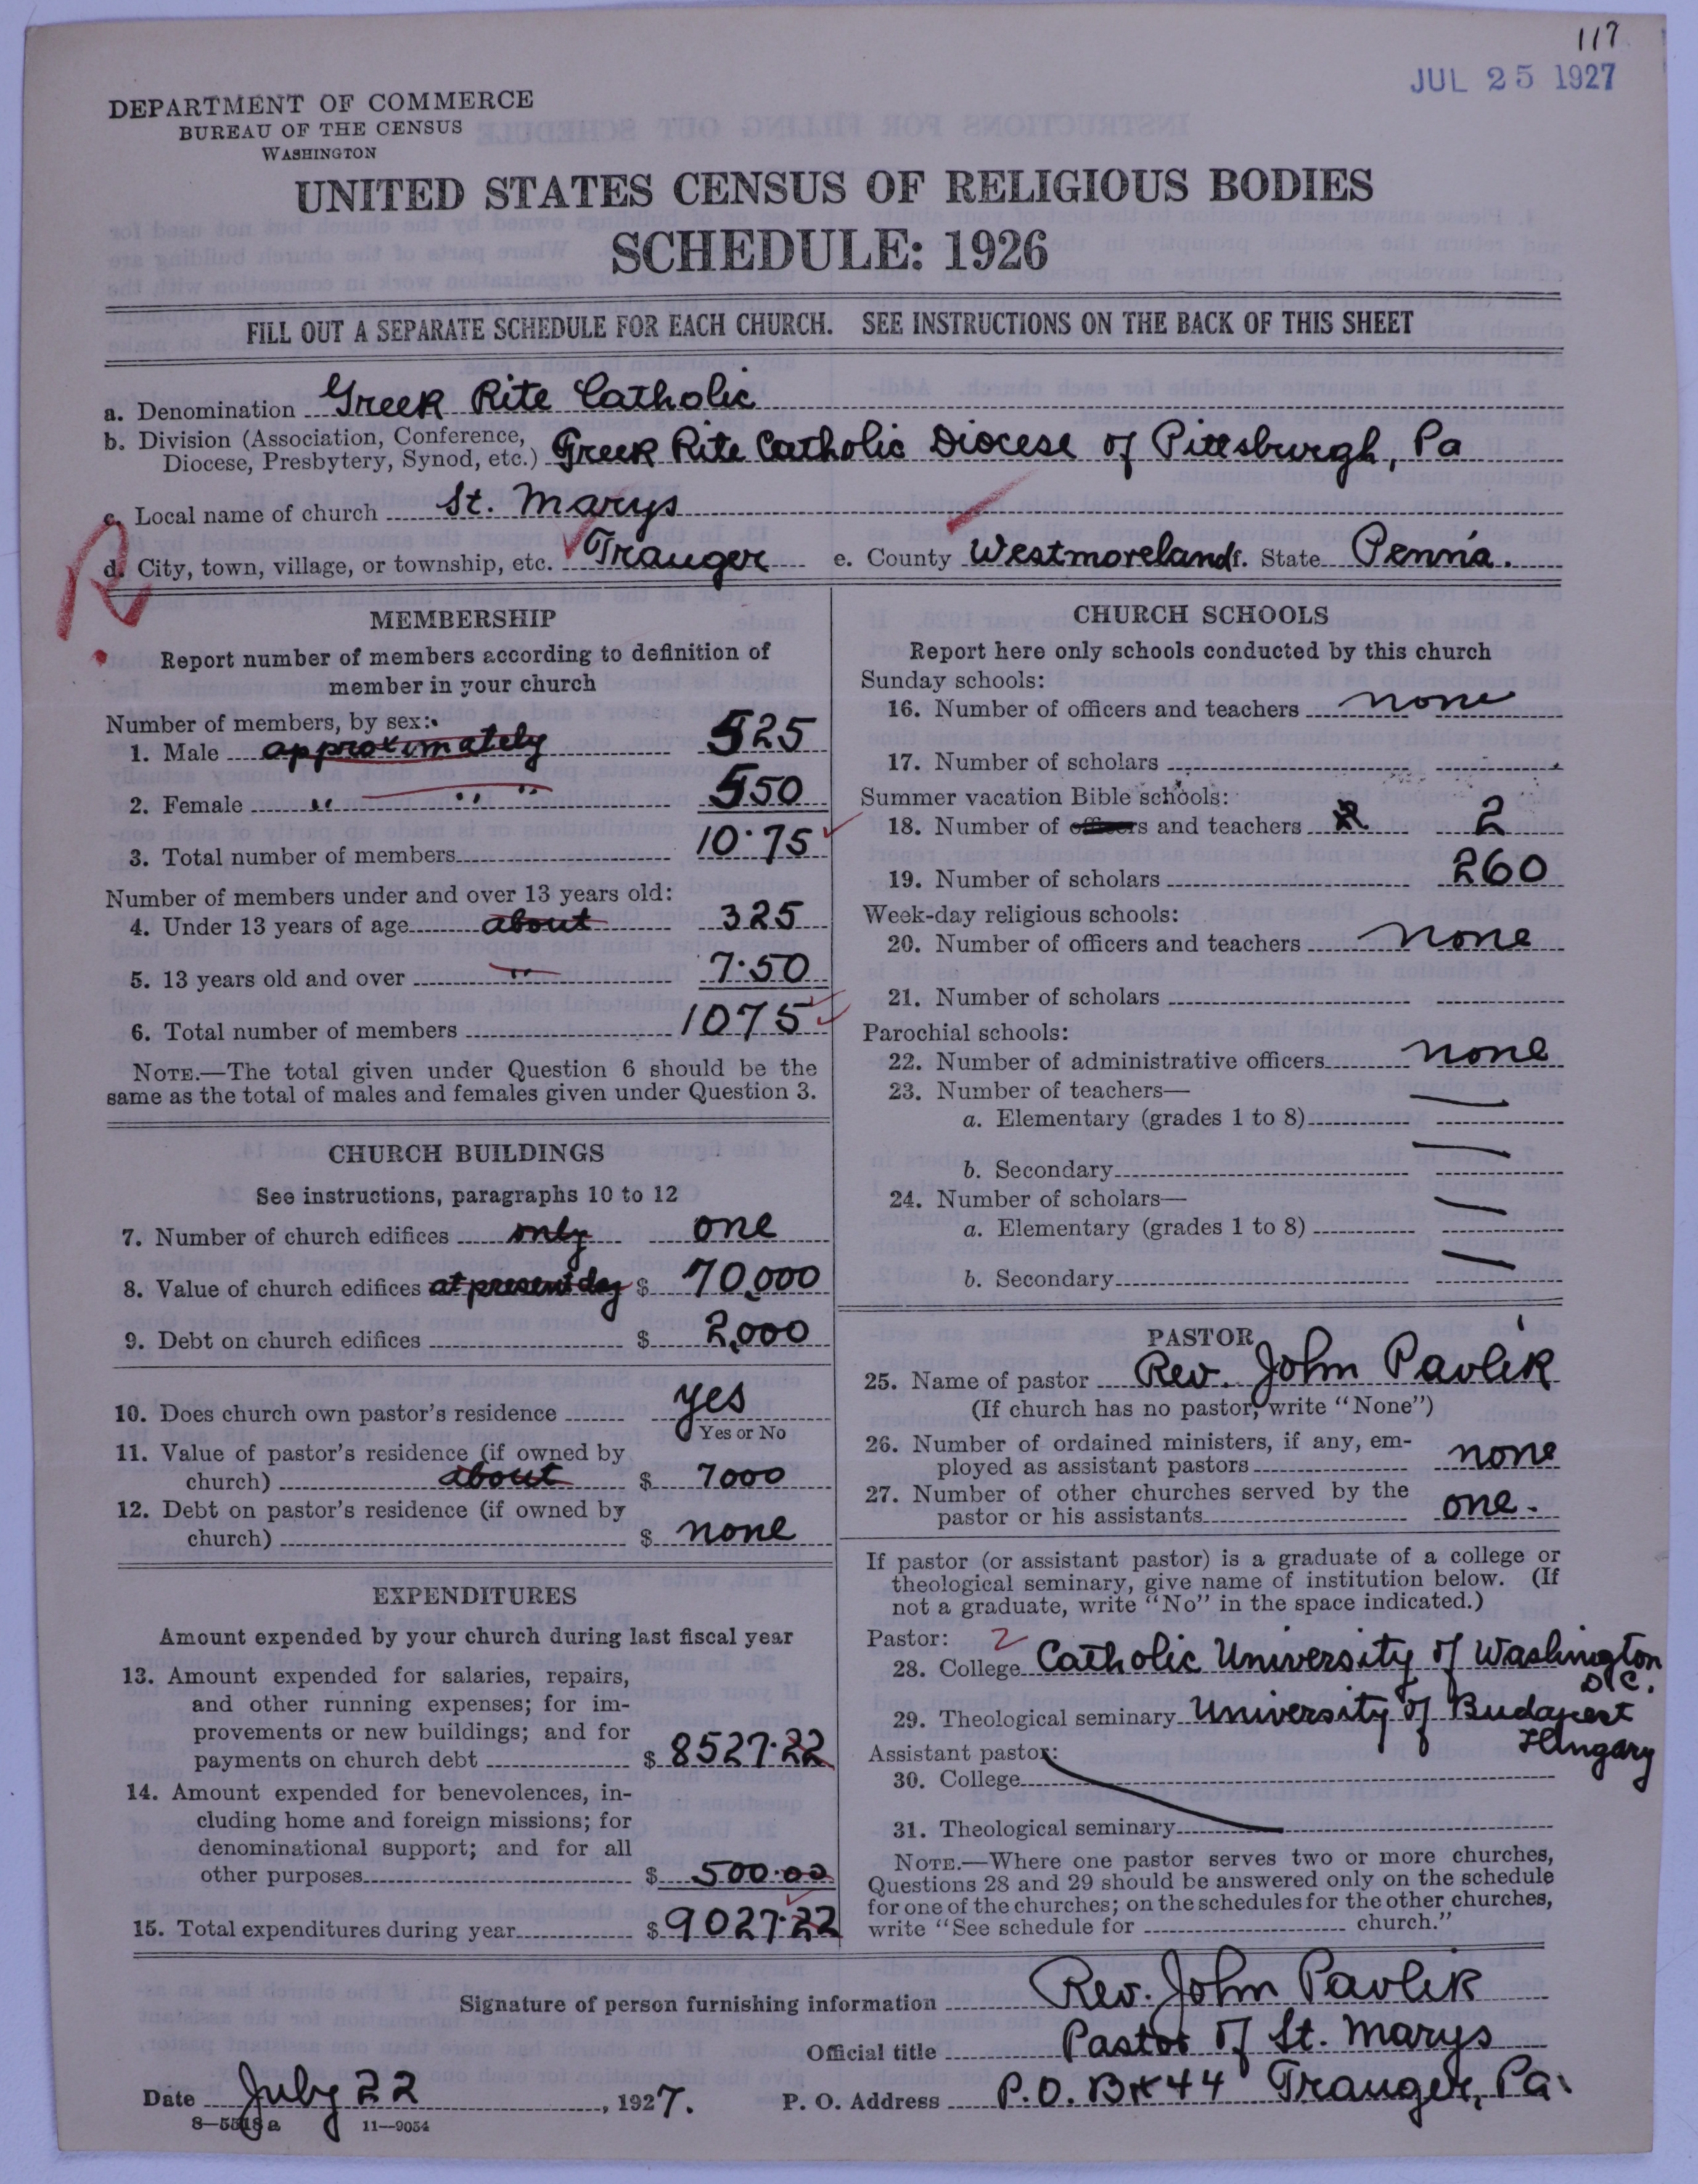 117
JUL 25 1927
DEPARTMENT OF COMMERCE
BUREAU OF THE CENSUS
WASHINGTON
UNITED STATES CENSUS OF RELIGIOUS BODIES
SCHEDULE: 1926
FILL OUT A SEPARATE SCHEDULE FOR EACH CHURCH. SEE INSTRUCTIONS ON THE BACK OF THIS SHEET
a. Denomination Greek Rite Catholic
b. Division (Association, Conference, Diocese, Presbytery, Synod, etc.) Greek Rite Catholic Diocese of Pittsburgh, Pa
c. Local name of church St. Marys
R
d. City, town, village, or township, etc. Trauger e. County Westmoreland f. State Penna.
MEMBERSHIP
Report number of members according to definition of
member in your church
Number of members, by sex:
1. Male approximately 525
2. Female " " " 550
3. Total number of members 10.75
Number of members under and over 13 years old:
4. Under 13 years of age about 325
5. 13 years old and over " 7.50
6. Total number of members 1075
NOTE.—The total given under Question 6 should be the
same as the total of males and females given under Question 3.
CHURCH BUILDINGS
See instructions, paragraphs 10 to 12
7. Number of church edifices only one
8. Value of church edifices at present day $ 70,000
9. Debt on church edifices $ 2,000
10. Does church own pastor's residence yes
Yes or No
11. Value of pastor's residence (if owned by
church) about $ 7000
12. Debt on pastor's residence (if owned by
church) $ none
EXPENDITURES
Amount expended by your church during last fiscal year
13. Amount expended for salaries, repairs,
and other running expenses; for im-
provements or new buildings; and for
payments on church debt $ 8527.22
14. Amount expended for benevolences, in-
cluding home and foreign missions; for
denominational support; and for all
other purposes $ 500.00
15. Total expenditures during year $ 9027.22
CHURCH SCHOOLS
Report here only schools conducted by this church
Sunday schools:
16. Number of officers and teachers none
17. Number of scholars
Summer vacation Bible schools:
18. Number of officers and teachers 2 2
19. Number of scholars 260
Week-day religious schools:
20. Number of officers and teachers none
21. Number of scholars
Parochial schools:
22. Number of administrative officers none
23. Number of teachers—
a. Elementary (grades 1 to 8) —
b. Secondary —
24. Number of scholars—
a. Elementary (grades 1 to 8) —
b. Secondary —
PASTOR
25. Name of pastor Rev. John Pavlik
(If church has no pastor, write "None")
26. Number of ordained ministers, if any, em-
ployed as assistant pastors none
27. Number of other churches served by the
pastor or his assistants one.
If pastor (or assistant pastor) is a graduate of a college or
theological seminary, give name of institution below. (If
not a graduate, write "No" in the space indicated.)
Pastor: 2
28. College Catholic University of Washington
D.C.
29. Theological seminary University of Budapest
Hungary
Assistant pastor:
30. College
31. Theological seminary
NOTE.—Where one pastor serves two or more churches,
Questions 28 and 29 should be answered only on the schedule
for one of the churches; on the schedules for the other churches,
write "See schedule for church."
Signature of person furnishing information Rev. John Pavlik
Official title Pastor of St. Marys
Date July 22, 1927. P. O. Address P.O. Bx 44 Trauger, Pa.
8—5518 a 11—9054